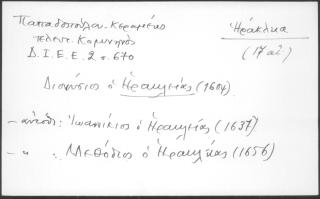 Παπαδοπούλου-Κεραμέως
τελευτ. Κομνηνός
Δ.Ι.Ε.Ε. 2 σ. 670
Ἡράκλεια
(17 αἰ)
Διονύσιος ὁ Ἡρακλείας (1604)
– αὐτόθι: Ἰωαννίκιος ὁ Ἡρακλείας (1637)
– " : Μεθόδιος ὁ Ἡρακλείας (1656)